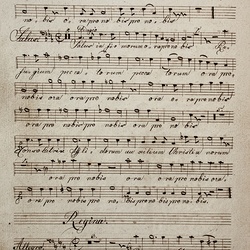 no, bis o, ra pro no bis pro no, bis.
Salus
Adagio
Salus in fir morum, ra pro no bis Re
fugium pecca, torum pecca torum o ra pro,
nobis ora ora pro nobis o, ra pro nobis
ora pro nobis ora pro nobis
Consolatrix afflic, torum au xilium Christia norum
o ra pro nobis ora pro nobis ora,
ora pro nobis pro no, bis pro no bis pro no, bis.
Regina
Allegro